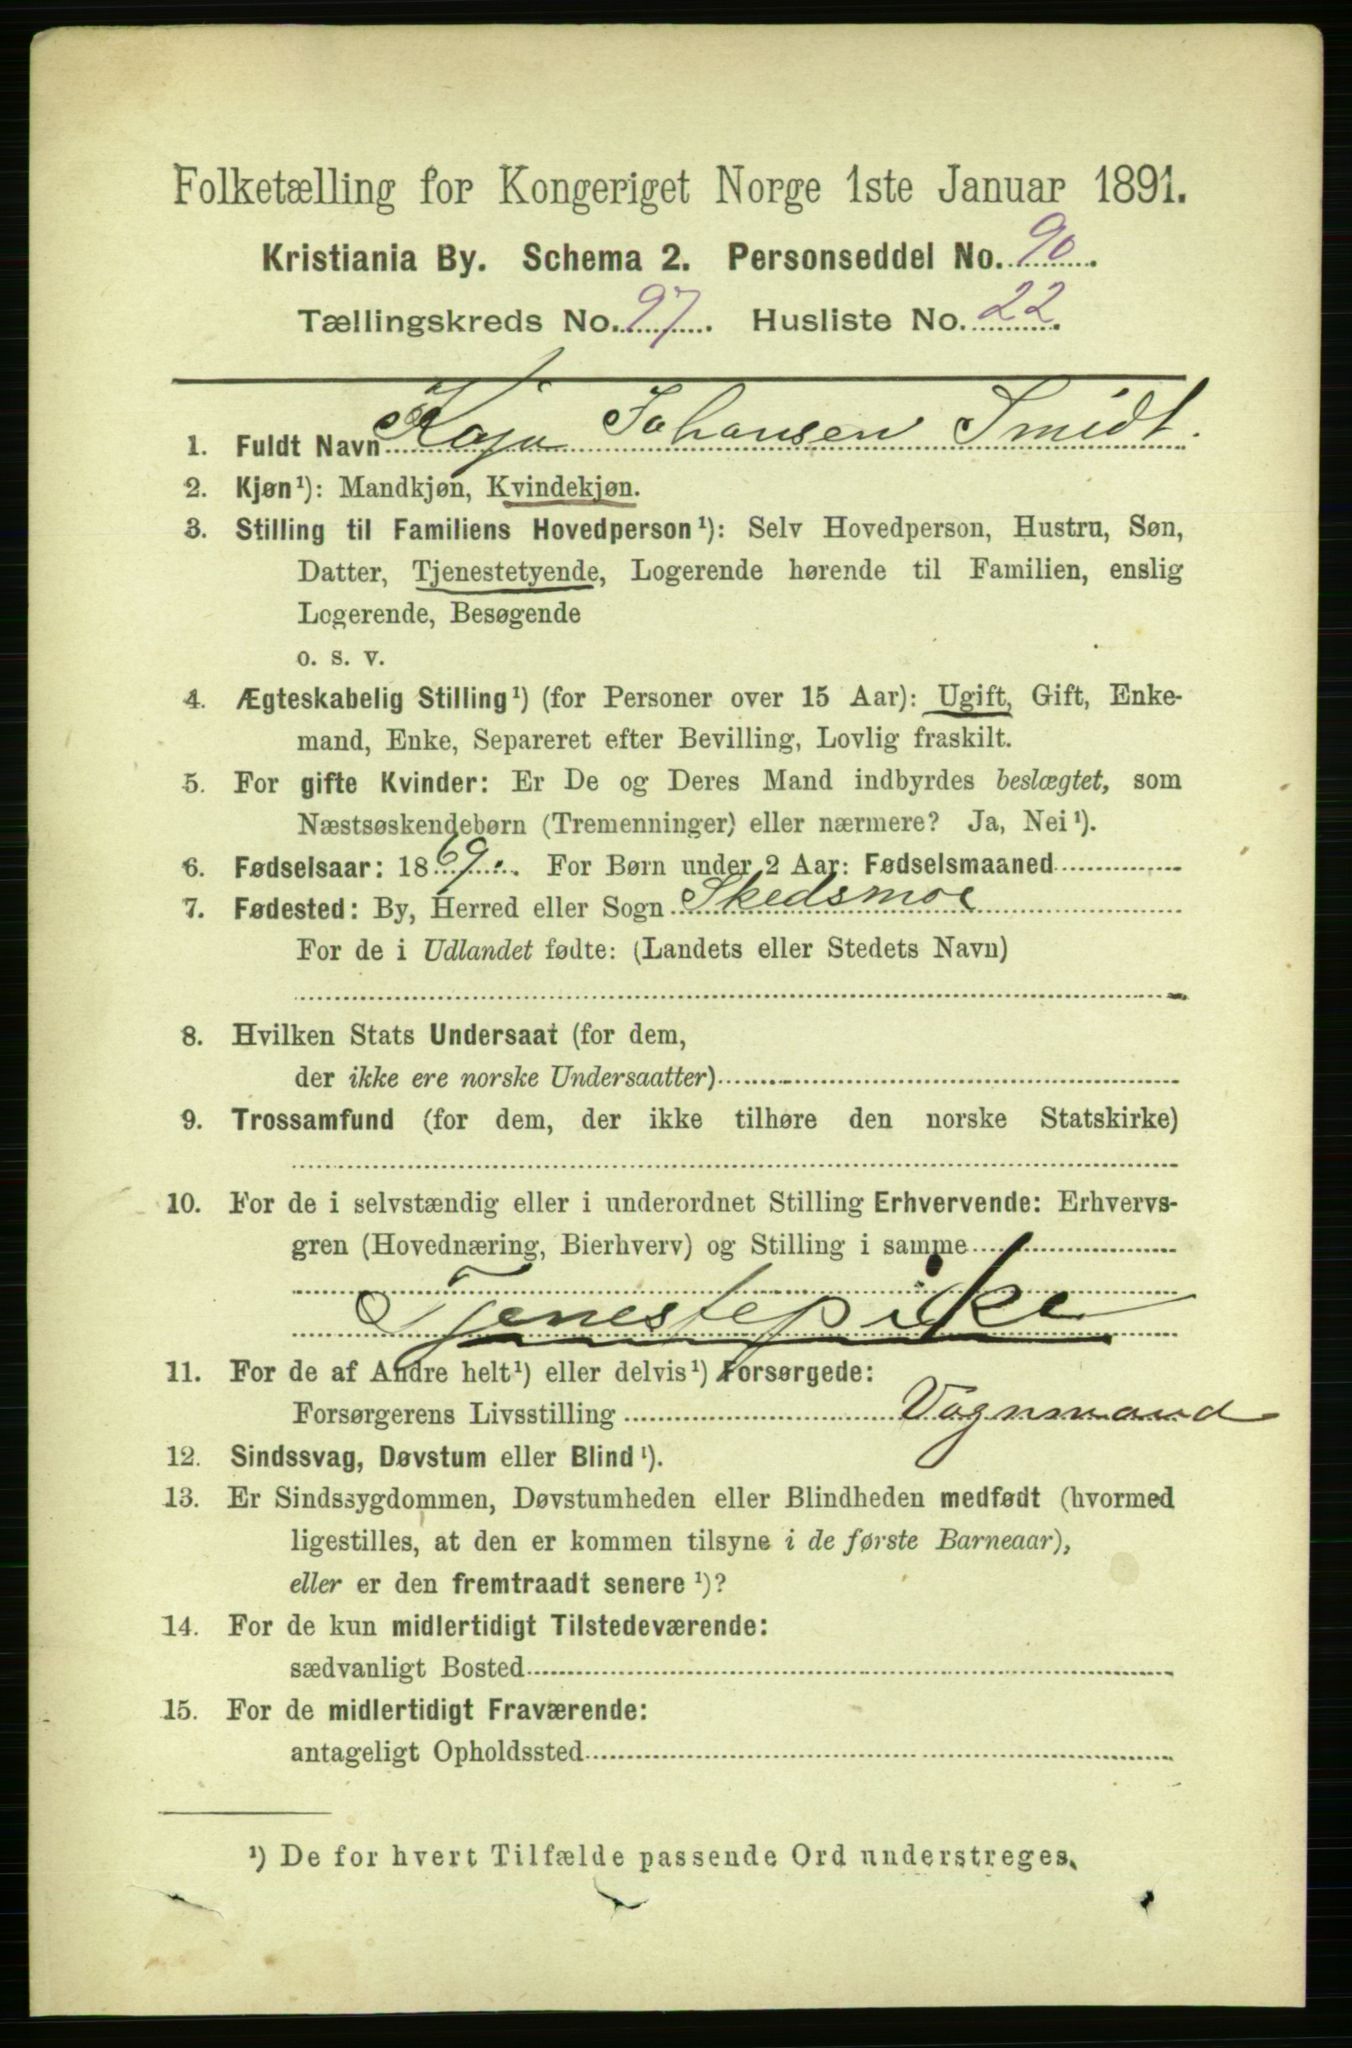 Folketælling for Kongeriget Norge 1ste Januar 1891.
Kristiania By. Schema 2. Personseddel No. 90.
Tællingskreds No. 97. Husliste No. 22.
1. Fuldt Navn Kaja Johansen Smidt.
2. Kjøn¹): Mandkjøn, Kvindekjøn.
3. Stilling til Familiens Hovedperson¹): Selv Hovedperson, Hustru, Søn,
Datter, Tjenestetyende, Logerende hørende til Familien, enslig
Logerende, Besøgende
o. s. v.
4. Ægteskabelig Stilling¹) (for Personer over 15 Aar): Ugift, Gift, Enke-
mand, Enke, Separeret efter Bevilling, Lovlig fraskilt.
5. For gifte Kvinder: Er De og Deres Mand indbyrdes beslægtet, som
Næstsøskendebørn (Tremenninger) eller nærmere? Ja, Nei¹).
6. Fødselsaar: 1869. For Børn under 2 Aar: Fødselsmaaned
7. Fødested: By, Herred eller Sogn Skedsmoe
For de i Udlandet fødte: (Landets eller Stedets Navn)
8. Hvilken Stats Undersaat (for dem,
der ikke ere norske Undersaatter)
9. Trossamfund (for dem, der ikke tilhøre den norske Statskirke)
10. For de i selvstændig eller i underordnet Stilling Erhvervende: Erhvervs-
gren (Hovednæring, Bierhverv) og Stilling i samme
Tjenestepike
11. For de af Andre helt¹) eller delvis¹) Forsørgede:
Forsørgerens Livsstilling Vognmand
12. Sindssvag, Døvstum eller Blind¹).
13. Er Sindssygdommen, Døvstumheden eller Blindheden medfødt (hvormed
ligestilles, at den er kommen tilsyne i de første Barneaar),
eller er den fremtraadt senere¹)?
14. For de kun midlertidigt Tilstedeværende:
sædvanligt Bosted
15. For de midlertidigt Fraværende:
antageligt Opholdssted
¹) De for hvert Tilfælde passende Ord understreges.